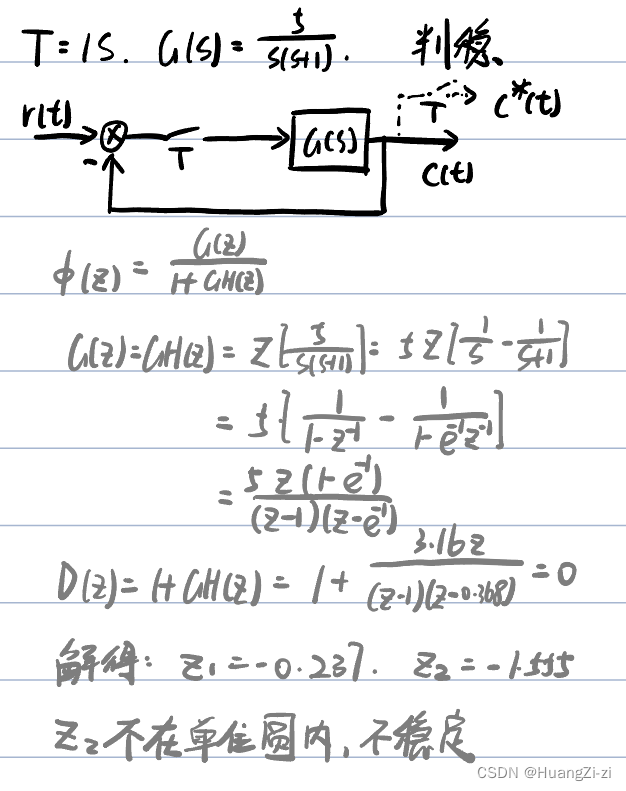 T=1S. G(s)=5/s(s+1). 判稳、
T C*(t)
r(t) - T G(s)
C(t)
ϕ(z)=G(z)/1+GH(z)
G(z)=GH(z)=Z[5/s(s+1)]=5Z[1/s-1/s+1]
=5[1/1-z⁻¹-1/1-e⁻¹z⁻¹]
=5z(1-e⁻¹)/(z-1)(z-e⁻¹)
D(z)=1+GH(z)=1+3.16z/(z-1)(z-0.368)=0
解得: z₁=-0.237. z₂=-1.555
z₂不在单位圆内,不稳定
CSDN @HuangZi-zi